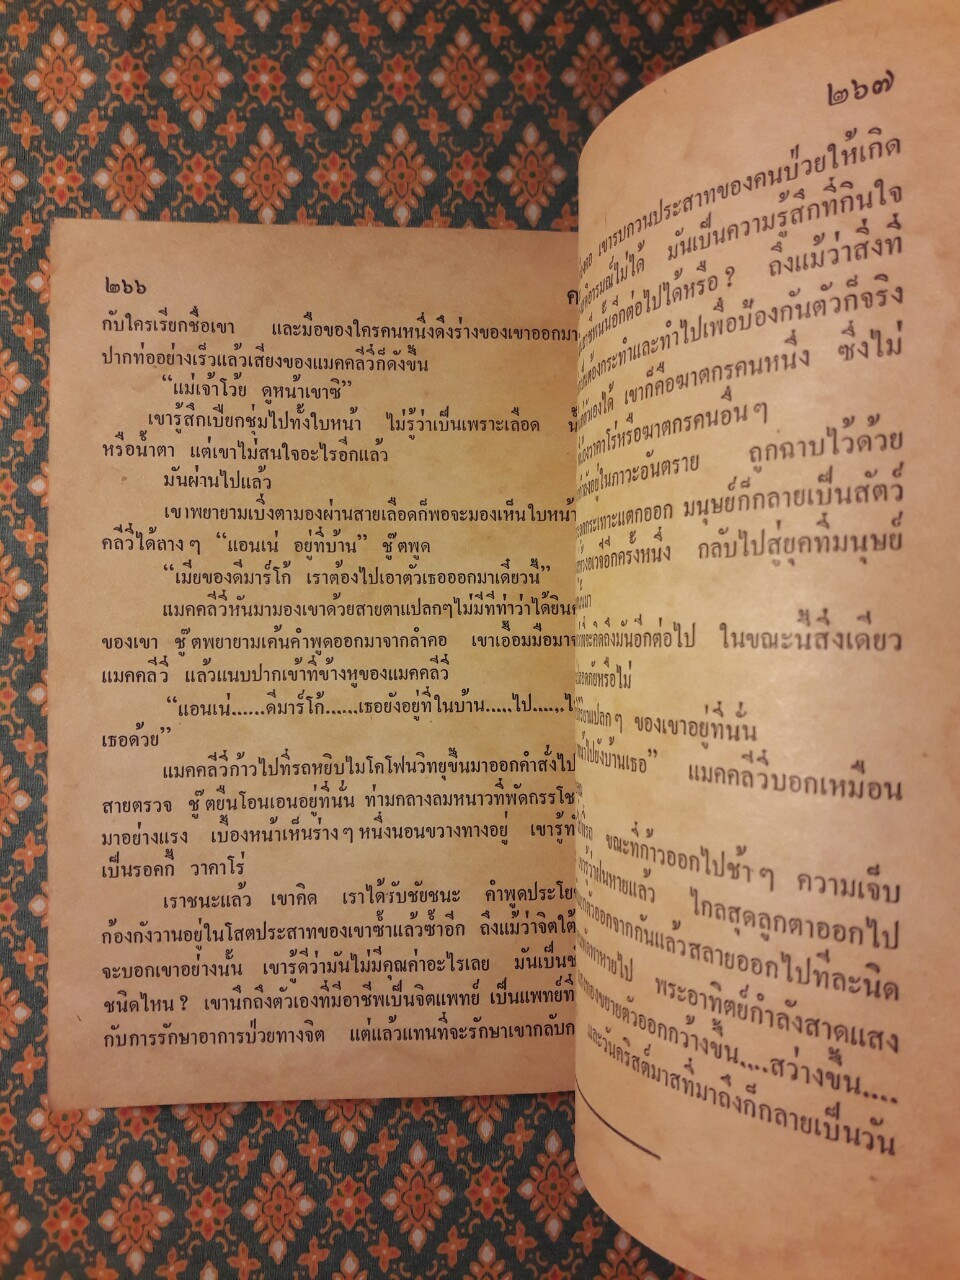 ๒๖๖
กับใครเรียกชื่อเขา และมือของใครคนหนึ่งดึงร่างของเขาออกมา
ปากท่ออย่างเร็วแล้วเสียงของแมคคลีวี่ก็ดังขึ้น
“แม่เจ้าโว้ย ดูหน้าเขาซิ”
เขารู้สึกเปียกชุ่มไปทั้งใบหน้า ไม่รู้ว่าเป็นเพราะเลือด
หรือน้ำตา แต่เขาไม่สนใจอะไรอีกแล้ว
มันผ่านไปแล้ว
เขาพยายามเบิ่งตามองผ่านสายเลือดก็พอจะมองเห็นใบหน้า
คลีวี่ได้ลาง ๆ “แอนเน่ อยู่ที่บ้าน” ชู๊ตพูด
“เมียของดีมาร์โก้ เราต้องไปเอาตัวเธอออกมาเดี๋ยวนี้”
แมคคลีวี่หันมามองเขาด้วยสายตาแปลกๆไม่มีทีท่าว่าได้ยิน
ของเขา ชู๊ตพยายามเค้นคำพูดออกมาจากลำคอ เขาเอื้อมมือมา
แมคคลีวี่ แล้วแนบปากเข้าที่ข้างหูของแมคคลีวี่
“แอนเน่......ดีมาร์โก้......เธอยังอยู่ที่ในบ้าน.....ไป.....
เธอด้วย”
แมคคลีวี่ก้าวไปที่รถหยิบไมโคโฟนวิทยุขึ้นมาออกคำสั่งไป
สายตรวจ ชู๊ตยืนโอนเอนอยู่ที่นั่น ท่ามกลางลมหนาวที่พัดกรรโช
มาอย่างแรง เบื้องหน้าเห็นร่าง ๆ หนึ่งนอนขวางทางอยู่ เขารู้
เป็นรอคกี้ วาคาโร่
เราชนะแล้ว เขาคิด เราได้รับชัยชนะ คำพูดประโย
ก้องกังวานอยู่ในโสตประสาทของเขาซ้ำแล้วซ้ำอีก ถึงแม้ว่าจิตใต้
จะบอกเขาอย่างนั้น เขารู้ดีว่ามันไม่มีคุณค่าอะไรเลย มันเป็น
ชนิดไหน ? เขานึกถึงตัวเองที่มีอาชีพเป็นจิตแพทย์ เป็นแพทย์ที่
กับการรักษาอาการป่วยทางจิต แต่แล้วแทนที่จะรักษาเขากลับก
๒๖๗
เขารบกวนประสาทของคนป่วยให้เกิด
อารมณ์ไม่ได้ มันเป็นความรู้สึกที่กินใจ
นี้อีกต่อไปได้หรือ ? ถึงแม้ว่าสิ่งที่
ต้องกระทำและทำไปเพื่อป้องกันตัวก็จริง
เขาก็คือฆาตกรคนหนึ่ง ซึ่งไม่
วาคาโร่หรือฆาตกรคนอื่น ๆ
อยู่ในภาวะอันตราย ถูกฉาบไว้ด้วย
กระเทาะแตกออก มนุษย์ก็กลายเป็นสัตว์
อีกครั้งหนึ่ง กลับไปสู่ยุคที่มนุษย์
จะคิดถึงมันอีกต่อไป ในขณะนี้สิ่งเดียว
หรือไม่
แปลก ๆ ของเขาอยู่ที่นั่น
ไปยังบ้านเธอ” แมคคลีวี่บอกเหมือน
ขณะที่ก้าวออกไปช้า ๆ ความเจ็บ
หายแล้ว ไกลสุดลูกตาออกไป
ออกจากกันแล้วสลายออกไปทีละนิด
หายไป พระอาทิตย์กำลังสาดแสง
ขยายตัวออกกว้างขึ้น....สว่างขึ้น....
และวันคริสต์มาสที่มาถึงก็กลายเป็นวัน